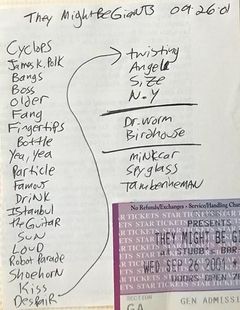 They Might Be GiaNTS 09·26·01
Cyclops
James K. Polk
Bangs
Boss
Older
Fang
Fingertips
Bottle
Yea, Yea
Particle
Famous
Drink
Istanbul
the Guitar
SUN
LOUD
Robot Parade
Shoehorn
Kiss
Despair
twisting
Angel
Size
N.Y
Dr. Worm
Birdhouse
minkcar
spyglass
Tambourineman
No Refunds/Exchanges - Service/Handling Char
STAR TICKETS STAR TICKETS STAR TICKETS
PRESENTS
THEY MIGHT BE G
STUBB'S BAR
WED SEP 26 2001
SECTION
GA
GEN ADMISS